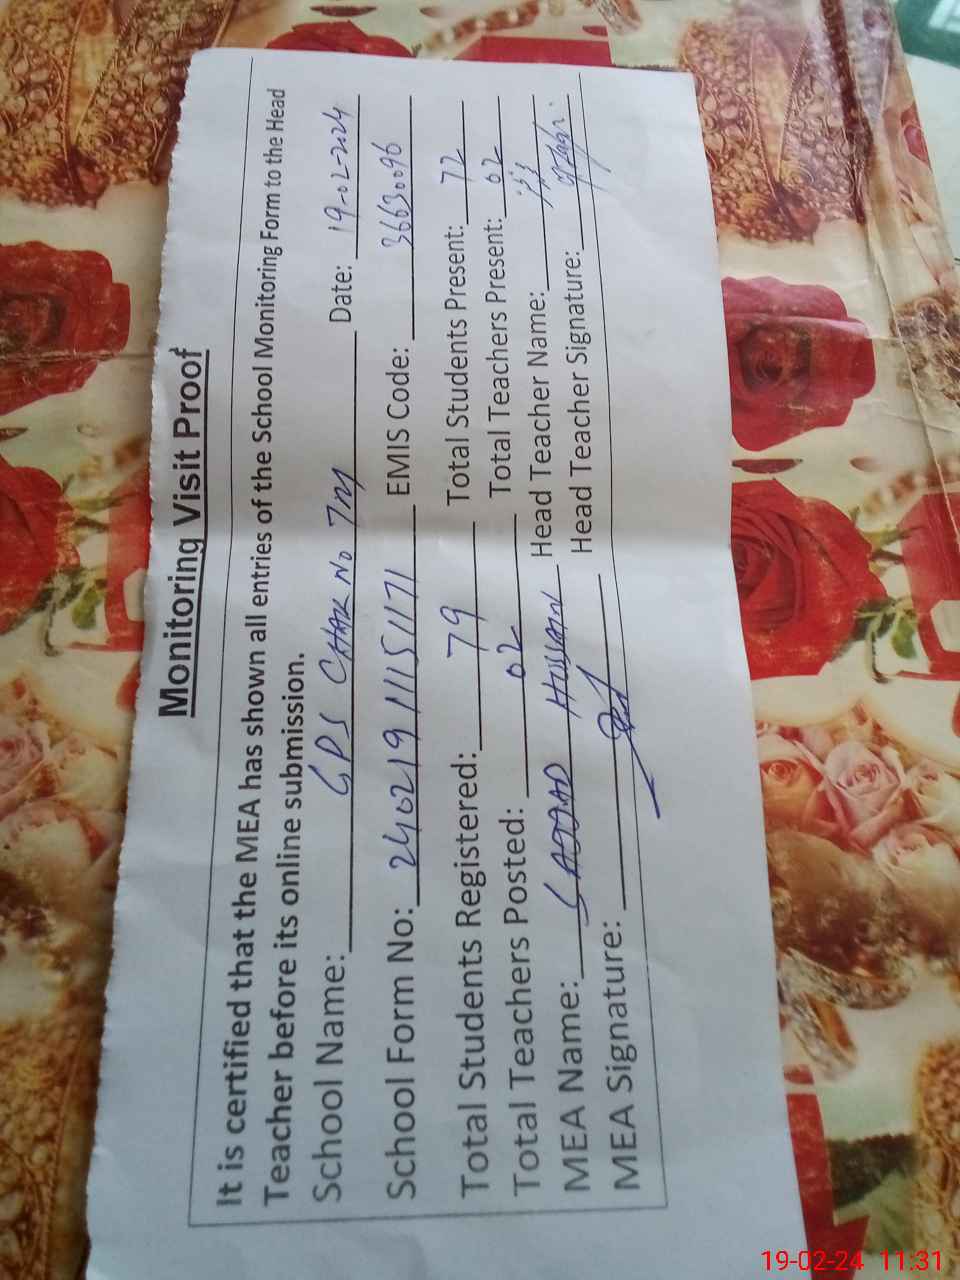 Monitoring Visit Proof
It is certified that the MEA has shown all entries of the School Monitoring Form to the Head
Teacher before its online submission.
School Name: GPS CHAK NO 7M Date: 19-02-2024
School Form No: 240219111151171 EMIS Code: 36630096
Total Students Registered: 79 Total Students Present: 72
Total Teachers Posted: 02 Total Teachers Present: 02
MEA Name: SAJJAD HUSSAIN Head Teacher Name:
MEA Signature: Head Teacher Signature:
19-02-24 11:31